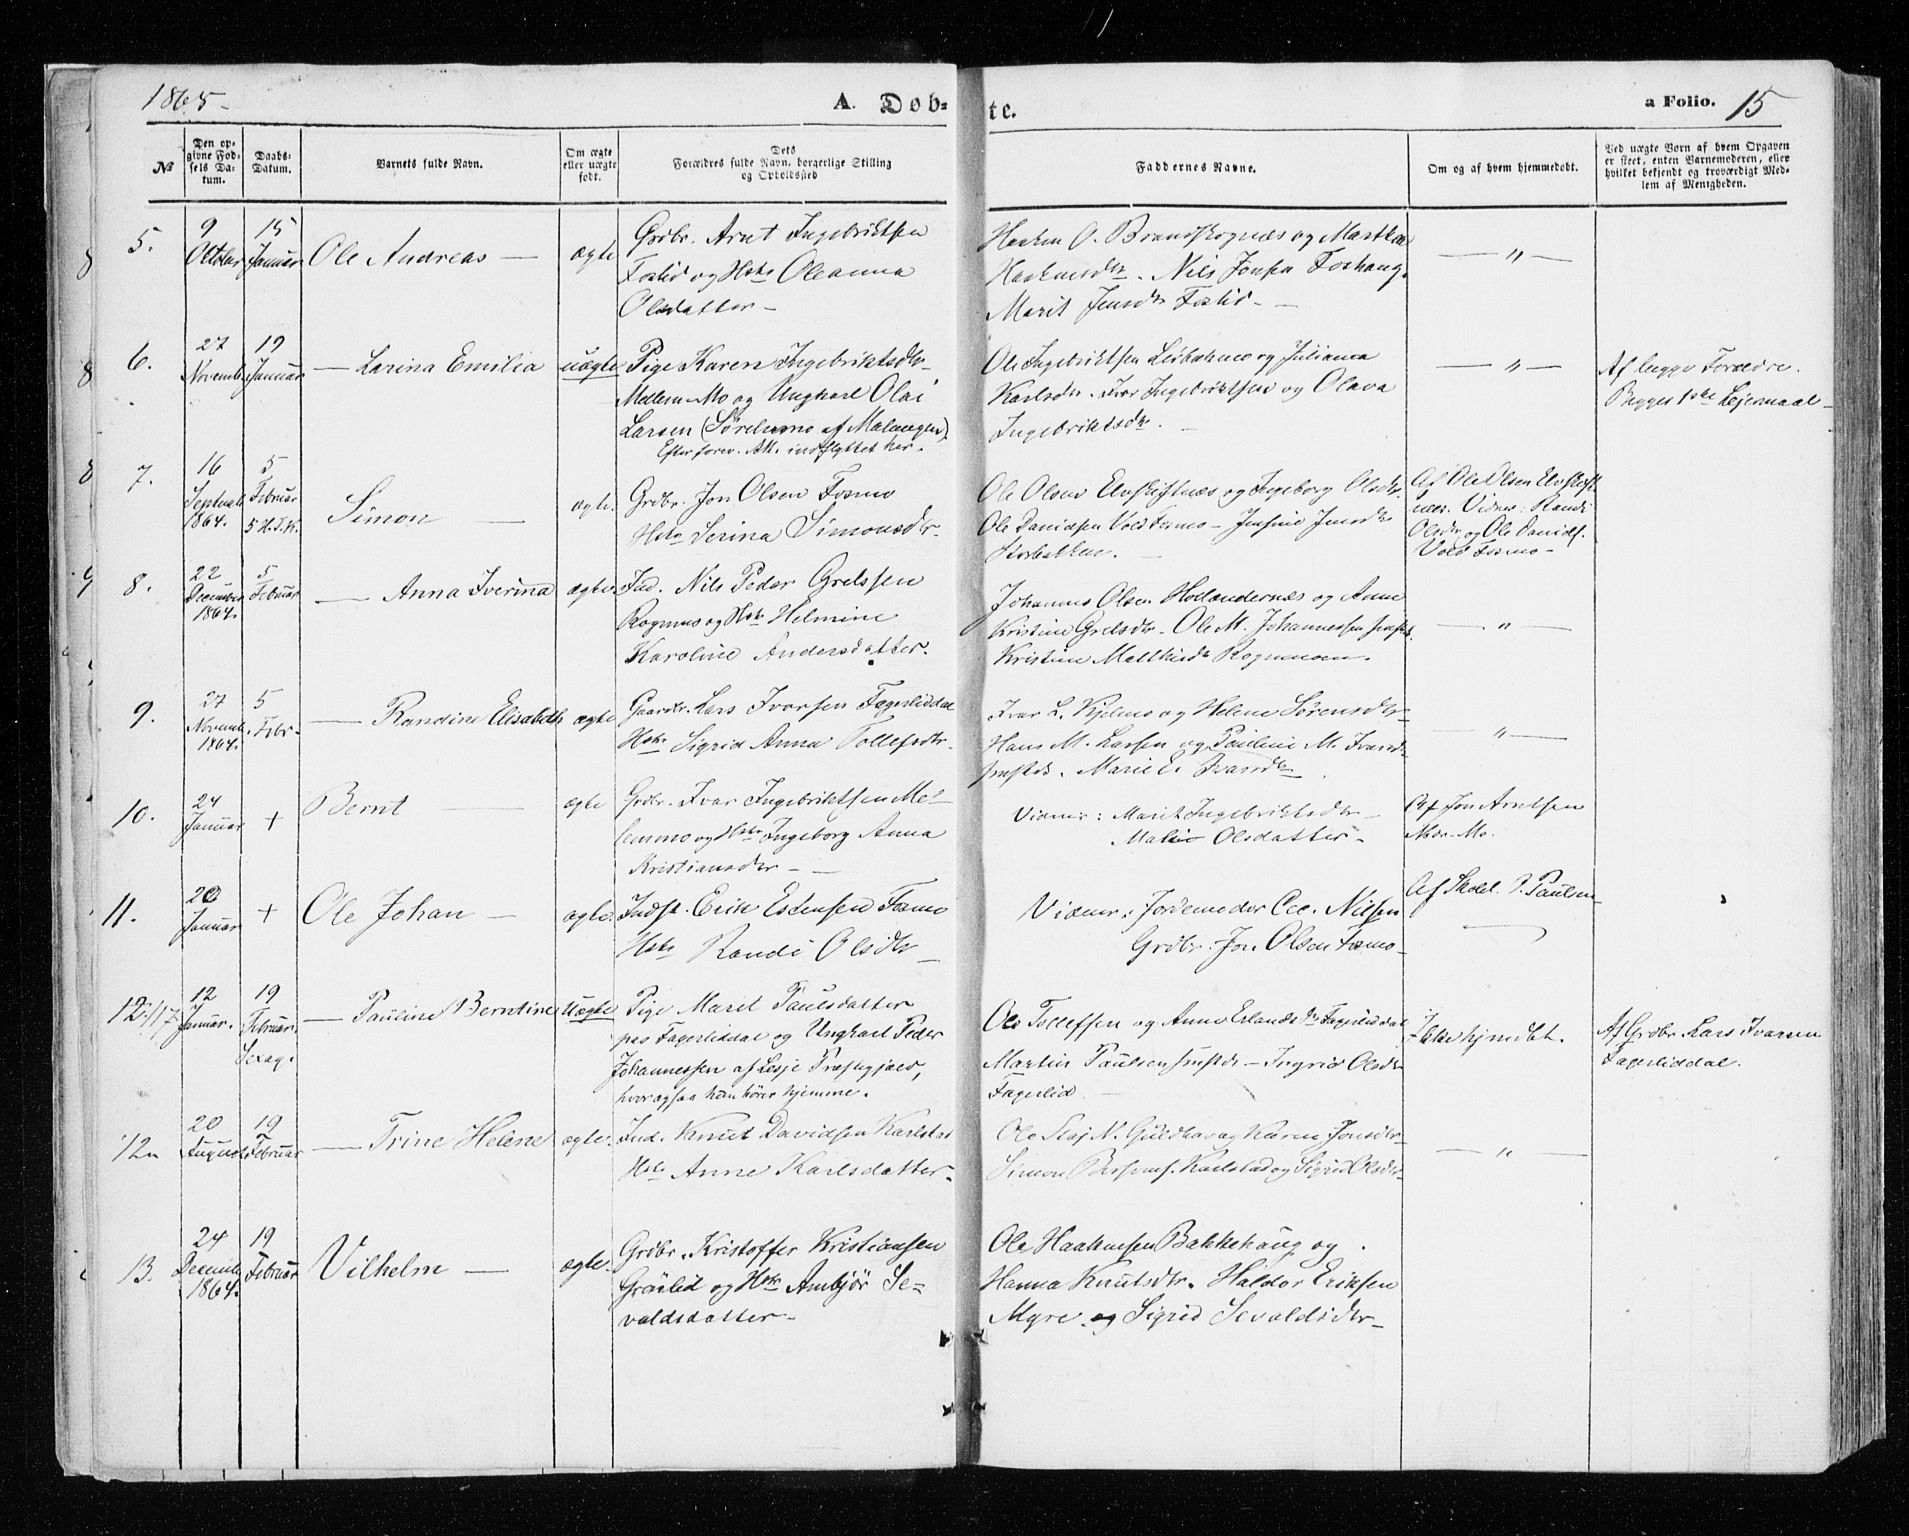 1865.
A. Døb-
te.
a Folio. 15
№
Den op-
givne Fød-
sels Da-
tum.
Daabs-
Datum.
Barnets fulde Navn.
Om ægte
eller uægte
født.
Dets
Forældres fulde Navn, borgerlige Stilling
og Opholdssted
Faddernes Navne.
Om og af hvem hjemmedøbt.
Ved uægte Børn af hvem Opgaven
er skeet, enten Barnemoderen, eller
hvilket bekjendt og troværdigt Med-
lem af Menigheden.
5.
9
October
15
Januar
Ole Andreas —
ægte
Grdbr. Arnt Ingebriktsen
Fostid og Hstr Oleanna
Olsdatter —
Haaken O. Brandskognæs og Martha
Haakensdtr. Nils Jonsen Foshaug.
Marit Jensdtr Fostid —
— " —
8
6.
27
Novemb.
19
Januar
— Larina Emilia
uægte
Pige Karen Ingebriktsdtr
Mellem-Mo og Ungkarl Olai
Larsen (Sørelvmo af Malangen).
Efter forev. Att. indflyttet her.
Ole Ingebriktsen og Juliana
Karlsdtr. Ivar Ingebriktsen og Olava
Ingebriktsdtr. —
— " —
Af begge Forældre.
Begges 1ste Lejermaal —
8
7.
16
Septemb.
1864.
5
Februar
5 H. T. K.
Simon —
ægte.
Grdbr. Jon Olsen Fosmo
Hstr Serina Simonsdtr.
Ole Olsen Elvskiftnæs og Ingeborg Olsdtr.
Ole Danielsen Vold Fosmo — Jensine Jensdtr
Storbakken. —
Af Ole Olsen Elvskift-
næs. Vidner: Randi
Olsdtr og Ole Daniels.
Vold Fosmo —
8
8.
22
December
1864.
5
Februar
— Anna Iverina
ægte.
Ind. Nils Peder Grelssen
Rognmo og Hstr Helmine
Karoline Andersdatter.
Johannes Olsen Hollendernæs og Anne
Kristine Grelsdtr. Ole M. Johannessen smstds.
Kristine Matthisdtr Rognmoen.
— " —
9
9.
27
Novemb.
1864.
5
Febr.
— Randine Elisabeth
ægte
Gaardbr. Lars Ivarsen Fagerliddal
Hstr Sigrid Anna Tollefsdtr.
Ivar L. Kjelmo og Helene Sørensdtr
Hans M. Larsen og Pauline M. Ivarsdtr
smstds. Marie E. Ivarsdtr
— " —
10.
24
Januar
+
Bernt —
ægte
Grdbr. Ivar Ingebriktsen Mel-
lemmo og Hstr Ingeborg Anna
Kristiansdtr — —
Vidner: Marit Ingebriktsdtr —
Malie Olsdatter —
Af Jon Arntsen
Nedr. Mo.
11.
20
Januar
+
Ole Johan —
ægte.
Indst. Erik Estensen Fosmo
Hstr Randi Olsdtr —
Vidner: Jordemoder Cec. Nilsen
Grdbr. Jon Olsen Fosmo —
Af Skolel. P. Paulsen
12./17.
12
Januar.
19
Februar.
Sexag.
— Pauline Berntine
uægte
Pige Marit Paulsdatter
paa Fagerliddal og Ungkarl Peder
Johannessen af Lesje Præstegjæld,
hvor ogsaa han hører hjemme.
Ole Tollefsen og Anne Erlandsdtr Fagerliddal
Martin Paulsen smstds — Ingrid Olsdtr
Fagerlid —
Ikke hjmdbt.
Af Grdbr. Lars Ivarsen
Fagerliddal.
12a
20
August
19
Februar
— Trine Helene
ægte.
Ind. Knut Davidsen Karlstad
Hstr Anne Karlsdatter.
Ole N. Guldhav og Karen Jonsdtr
Simon Karlstad og Sigrid Olsdtr.
— " —
13.
24
Decemb.
1864.
19
Februar
Vilhelm —
ægte.
Grdbr. Kristoffer Kristiansen
Grønlid og Hstr Ambjør Se-
valdsdatter —
Ole Haakensen Bakkehaug og
Hanna Knutsdtr. Haldor Eriksen
Myre og Sigrid Sevaldsdtr —